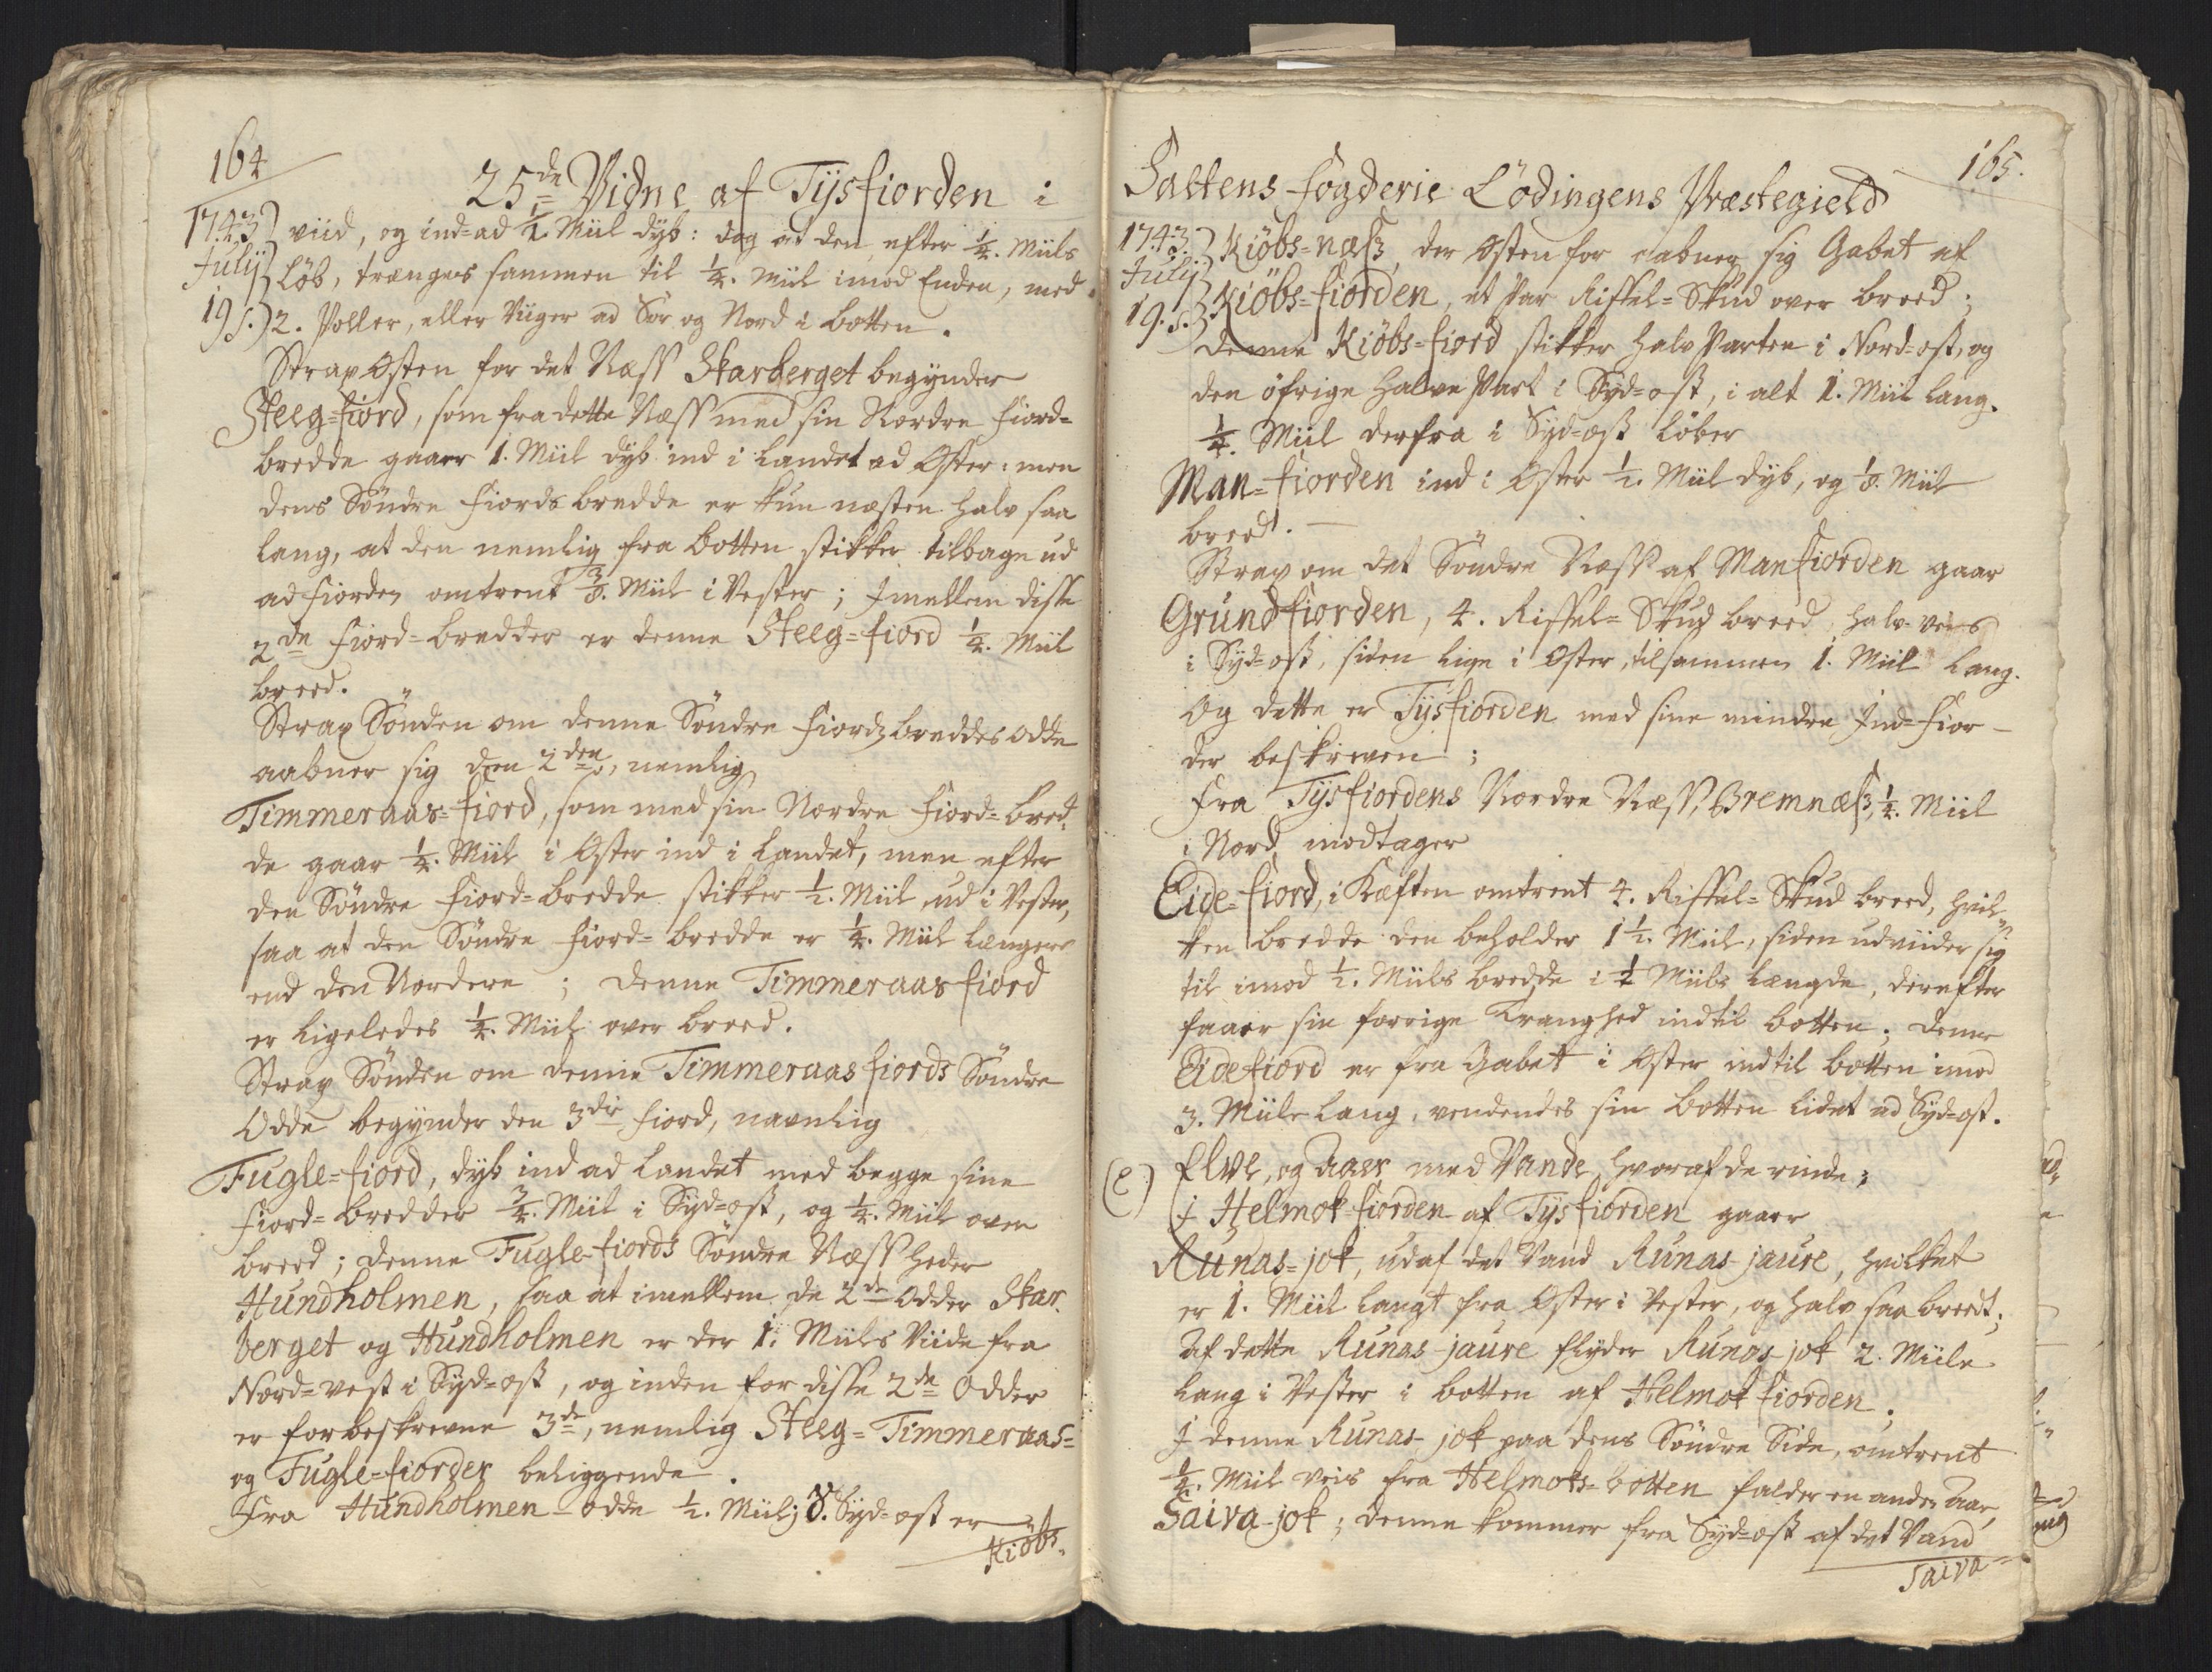 164
25de Vidne af Tysfiorden i
1743 viid, og ind=ad 1/2 Miil dyb: dog at den efter 1/4. Miils
July Løb, trænges sammen til 1/4. Miil imod Enden, med
19 s. 2. Poller, eller Viiger ad Sør og Nord i botten.
Strax Østen for det Næss Skarberget begynder
Steeg=fiord, som fra dette Næss med sin Nordre Fiord=
bredde gaaer 1. Miil dyb ind i Landet ad Øster: men
dens Søndre Fiords bredde er kun næsten halv saa
lang, at den nemlig fra botten stikker tilbage ud
ad Fiorden omtrent 3/8. Miil i Vester; Imellem disse
2de Fiord=bredder er denne Steeg=fiord 1/4. Miil
breed.
Strax Sønden om denne Søndre Fiords breddes Odde
aabner sig den 2den, nemlig
Timmeraas=fiord, som med sin Nordre Fiord=bred=
de gaar 1/4. Miil i Øster ind i Landet, men efter
den Søndre Fiord=bredde stikker 1/2. Miil ud i Vester,
saa at den Søndre Fiord=bredde er 1/4. Miil længere
end den Nordere; denne Timmeraas fiord
er ligeledes 1/4. Miil over breed.
Strax Sønden om denne Timmeraas fiords Søndre
Odde begynder den 3die Fiord, navnlig
Fugle=fiord, dyb ind ad Landet med begge sine
Fiord=bredder 3/4. Miil i Syd=ost, og 1/4. Miil over
breed; denne Fugle-fiords Søndre Næss heder
Hundholmen, saa at imellem de 2de Odder Skar=
berget og Hundholmen er der 1. Miils Viide fra
Nord=vest i Syd=ost, og inden for disse 2de Odder
er forbeskrevne 3de, nemlig Steeg= Timmeraas=
og Fugle=fiorder beliggende.
Fra Hundholmen-odde 1/2. Miil i Syd=ost er
Kiöbs=
165.
Saltens fogderie Lödingens Præstegield
1743. Kiöbs=næss, der Østen for aabner sig Gabet af
July Kiöbs=fiorden, et Par Riffel=Skud over breed;
19. s. denne Kiöbs=fiord stikker halv Parten i Nord=ost, og
den øfrige halve Part i Syd=ost, i alt 1. Miil lang.
1/4. Miil derfra i Syd=ost løber
Man=fiorden ind i Øster 1/2. Miil dyb, og 1/8. Miil
breed.
Strax om det Søndre Næss af Manfiorden gaar
Grundfiorden, 4. Riffel=Skud breed, halv-veis
i Syd=ost, siden lige i Øster, tilsammen 1. Miil lang.
Og dette er Tysfiorden med sine mindre Ind=Fior-
der beskreven;
Fra Tysfiordens Nordre Næss, Bremnæss, 1/4. Miil
i Nord modtager
Eide=fiord, i Kæften omtrent 4. Riffel=Skud breed, hvil=
ken bredde den beholder 1 1/2. Miil, siden udviider sig
til imod 1/2. Miils bredde i 1/2 Miils Længde, derefter
faaer sin forrige Tranghed indtil botten; denne
Eidefiord er fra Gabet i Øster indtil botten imod
3. Miile lang, vendendes sin botten lidet ad Syd=ost.
(e) Elve, og Aaer med Vande, hvoraf de rinde;
I Helmok-fiorden af Tysfiorden gaaer
Runas=jok, ud af det Vand Runas-jaure, hvilket
er 1. Miil langt fra Øster i Vester, og halv saa breedt;
Af dette Runas-jaure flyder Runas jok 2. Miile
lang i Vester i botten af Helmok fiorden.
I denne Runas-jok paa dens Søndre Side, omtrent
1/4. Miil veis fra Helmoks=botten falder en anden Aae,
Saiva-jok; denne kommer fra Syd=ost af det Vand
Saiva=